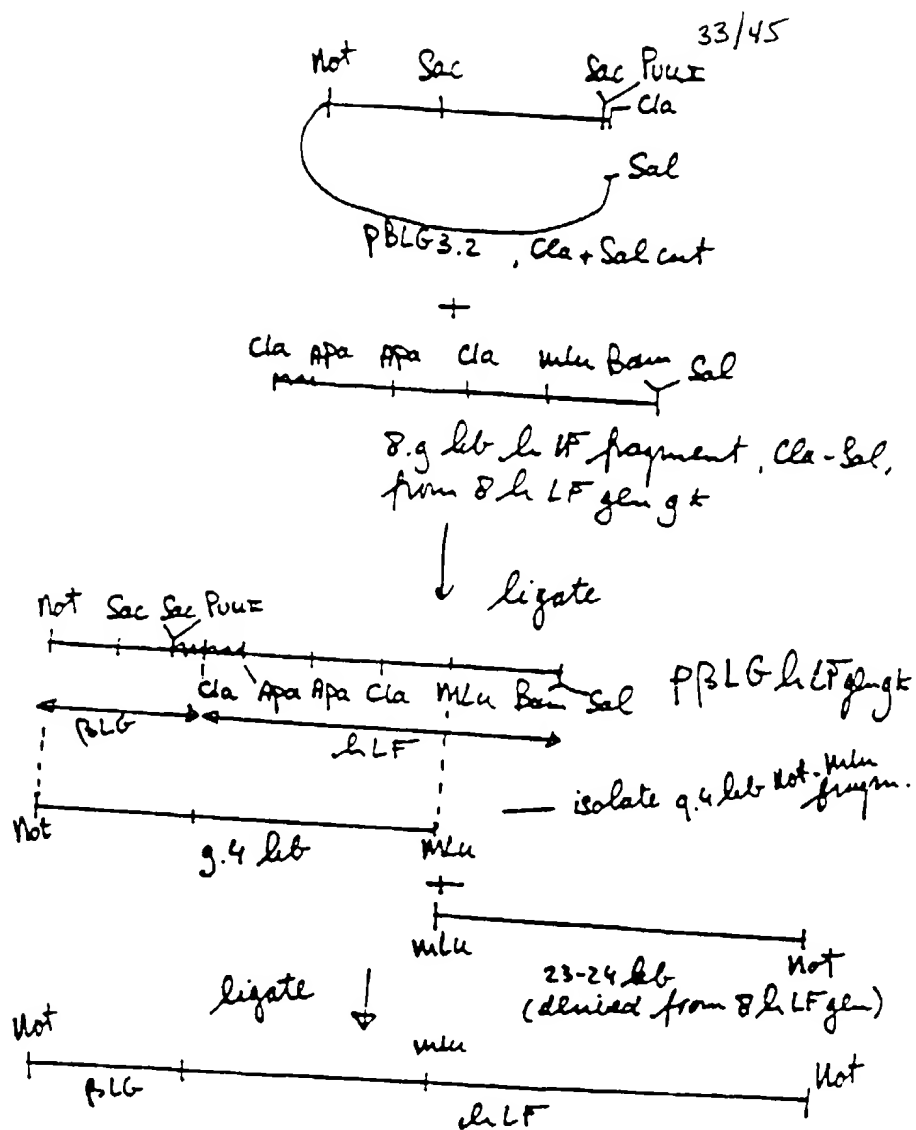 33/45
Not Sac Sac PvuI
Cla
Sal
pBLG3.2, Cla + Sal cut
+
Cla Apa Apa Cla MLu Bam Sal
8.9 kb h LF fragment, Cla-Sal,
from 8 h LF gen gk
ligate
Not Sac Sac PvuI
Cla Apa Apa Cla MLu Bam Sal pβLG h LF gen gk
βLG
hLF
isolate 9.4 kb Not-Mlu
fragm.
Not 9.4 kb MLu
+
MLu Not
23-24 kb
(derived from 8 h LF gen)
ligate
Not MLu Not
βLG hLF